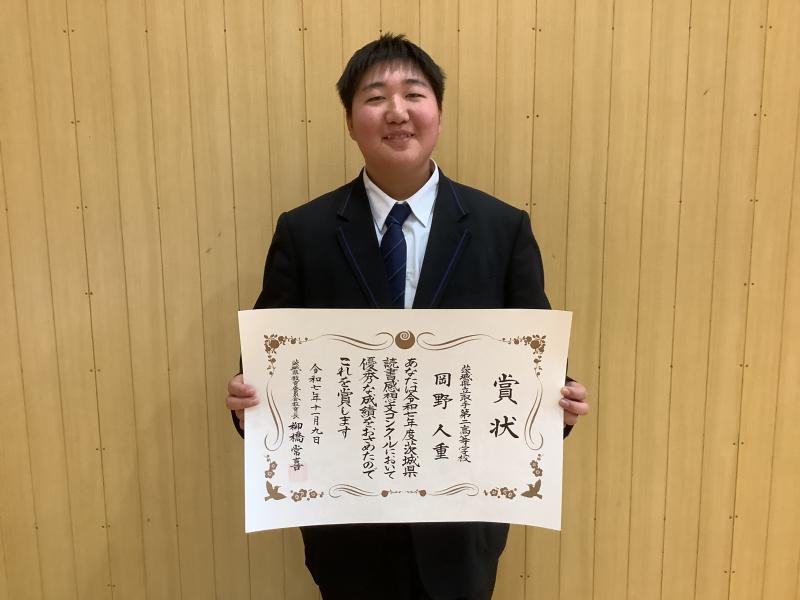 賞状
茨城県立取手第二高等学校
岡野人重
あなたは令和七年度茨城県
読書感想文コンクールにおいて
優秀な成績をおさめたので
これを賞します
令和七年十一月九日
茨城県教育委員会教育長 柳橋常喜